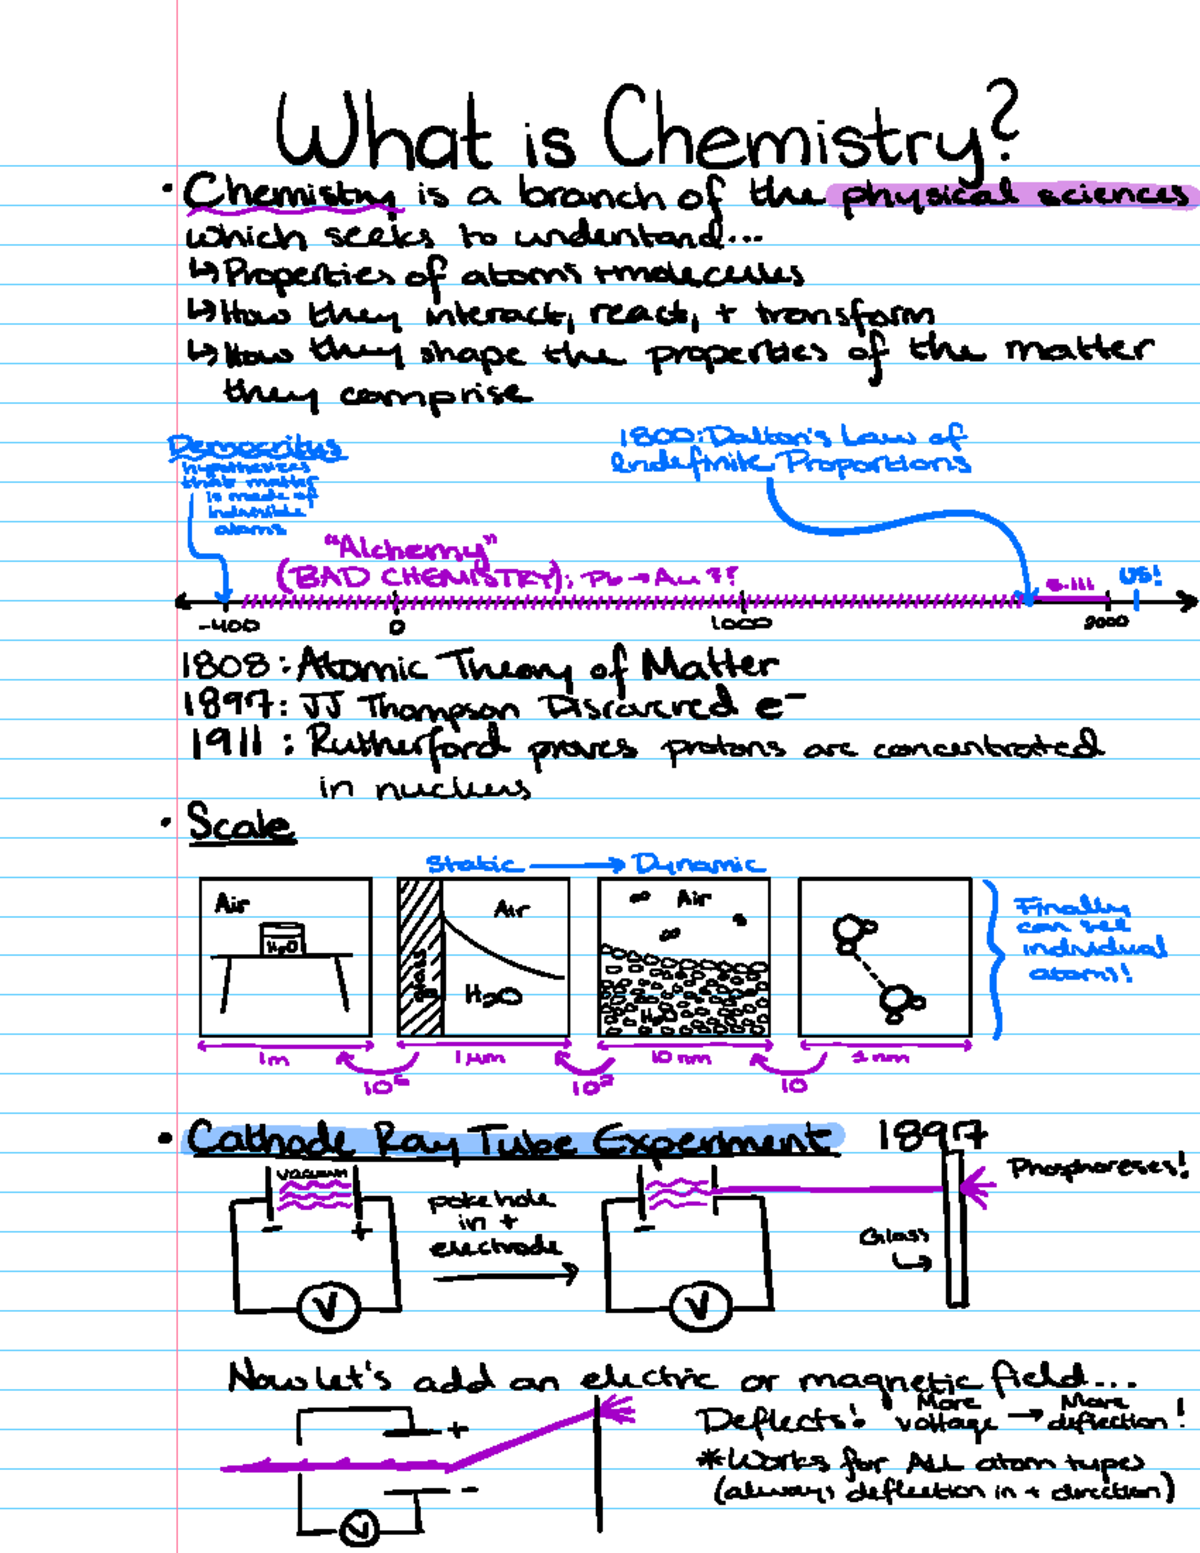 What is Chemistry?
• Chemistry is a branch of the physical sciences
which seeks to understand...
↳Properties of atoms + molecules
↳How they interact, react, + transform
↳How they shape the properties of the matter
they comprise
Democritus
hypothesizes
that matter
is made of
indivisible
atoms
1800: Dalton's Law of
Indefinite Proportions
"Alchemy"
(BAD CHEMISTRY): Pb → Au ??
5.111
US!
-400
0
1000
2000
1808: Atomic Theory of Matter
1897: JJ Thompson Discovered e⁻
1911: Rutherford proves protons are concentrated
in nucleus
• Scale
Static → Dynamic
Air
H₂O
glass
Air
H₂O
Air
H₂O
Finally
can see
individual
atoms!
1m
1μm
10 nm
1 nm
10⁶
10²
10
• Cathode Ray Tube Experiment 1897
vacuum
- +
V
poke hole
in +
electrode
-
V
Glass
Phosphoreses!
Now let's add an electric or magnetic field...
+
-
V
Deflects! More voltage → More deflection!
*Works for ALL atom types
(always deflection in + direction)